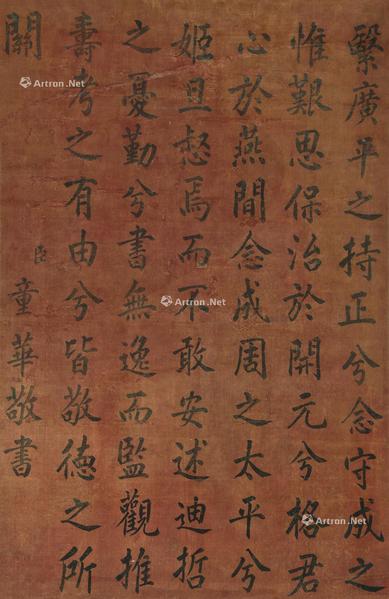 繄廣平之持正兮念守成之
惟艱思保治於開元兮格君
心於燕間念成周之太平兮
姬旦惄焉而不敢安述迪哲
之憂勤兮書無逸而監觀推
壽考之有由兮皆敬德之所
關
臣童華敬書
Artron.Net
Artron.Net
Artron.Net
Artron.Net